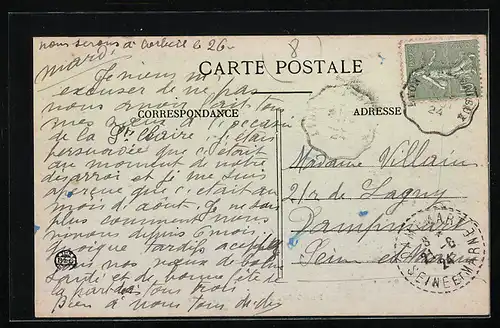 nous serons à Corbeil le 26
mardi
8
CARTE POSTALE
CORRESPONDANCE
ADRESSE
Je viens m'
excuser de ne pas
nous avoir fait tous
mes vœux à l'occasion
de la Ste Claire j'étais
persuadée que c'était
au moment de notre
désarroi et je me suis
aperçue que c'était au
mois d'août. Je ne sais
plus comment nous
vivons depuis 6 mois
quoique tardifs
mes vœux de bonne
santé et de bonne fête de
la part de tous trois
Bien à vous tous
Madame Villain
21 r de Lagny
Dampmart
Seine et Marne
24
SEINE ET MARNE